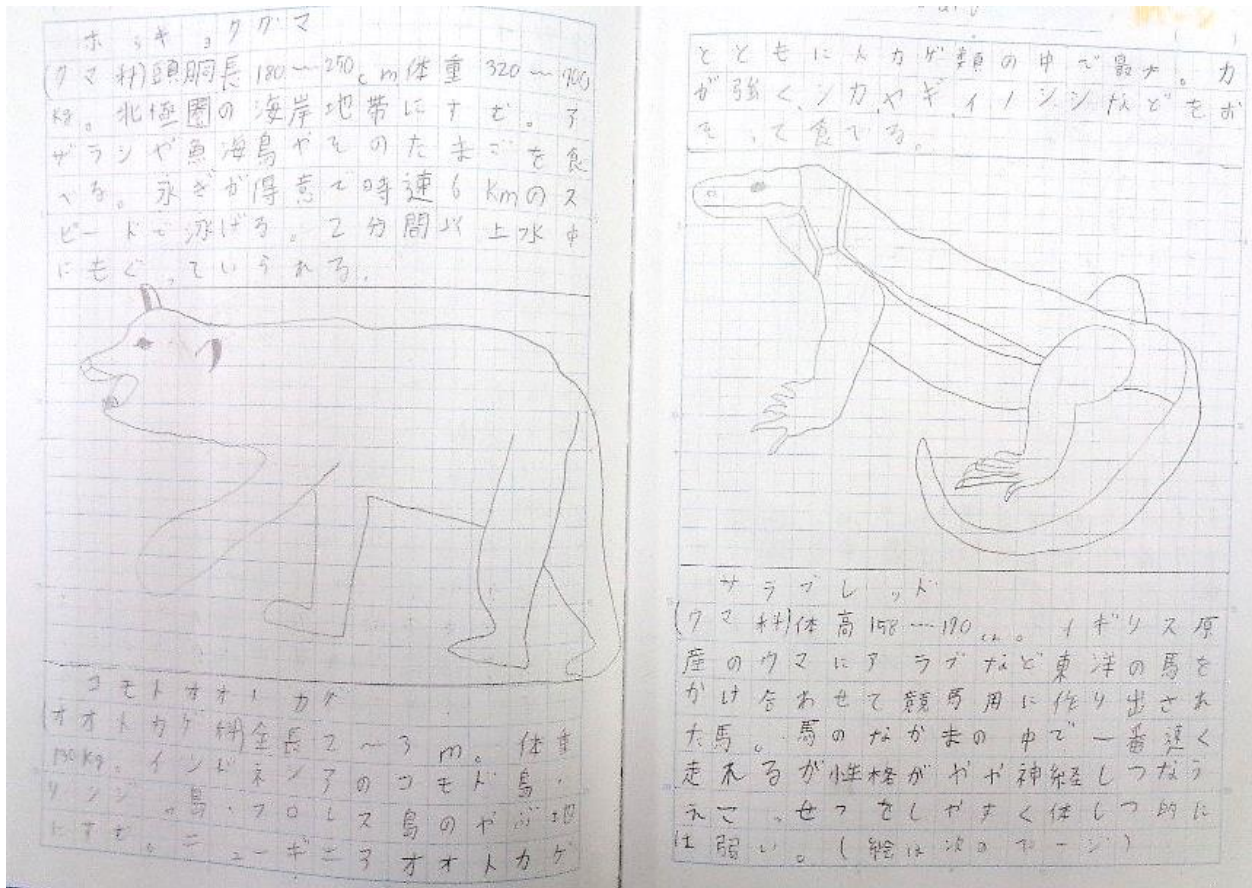 ホッキョクグマ
(クマ科)頭胴長180〜250cm体重320〜700
kg。北極圏の海岸地帯にすむ。ア
ザラシや魚海鳥やそのたまごを食
べる。永ぎが得意で時速6Kmのス
ピードで泳げる。2分間以上水中
にもぐっていられる。
コモドオオトカゲ
(オオトカゲ科)全長2〜3m。体重
150kg。インドネシアのコモド島・
リンジ。島・フロレス島のやぶ地
にすむ。ニューギニアオオトカゲ
とともにトカゲ類の中で最大。力
が強く、シカ、ヤギ、イノシシなどをお
そって食べる。
サラブレッド
(ウマ科)体高158〜190cm。イギリス原
産のウマにアラブなど東洋の馬を
かけ合わせて競馬用に作り出され
た馬。馬のなかまの中で一番速く
走れるが性格がやや神経しつなう
え、せつをしやすく体しつ的に
は弱い。(絵は次のページ)